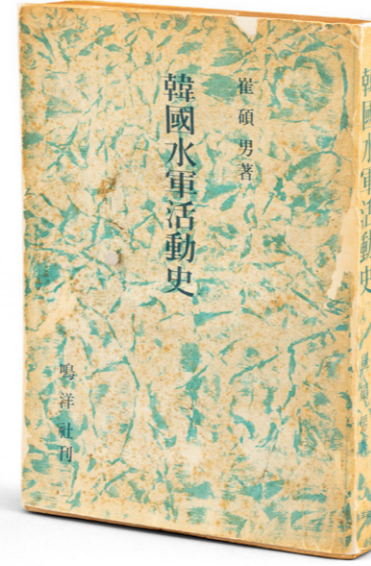 崔碩男著
韓國水軍活動史
鳴洋社刊
韓國水軍活動史